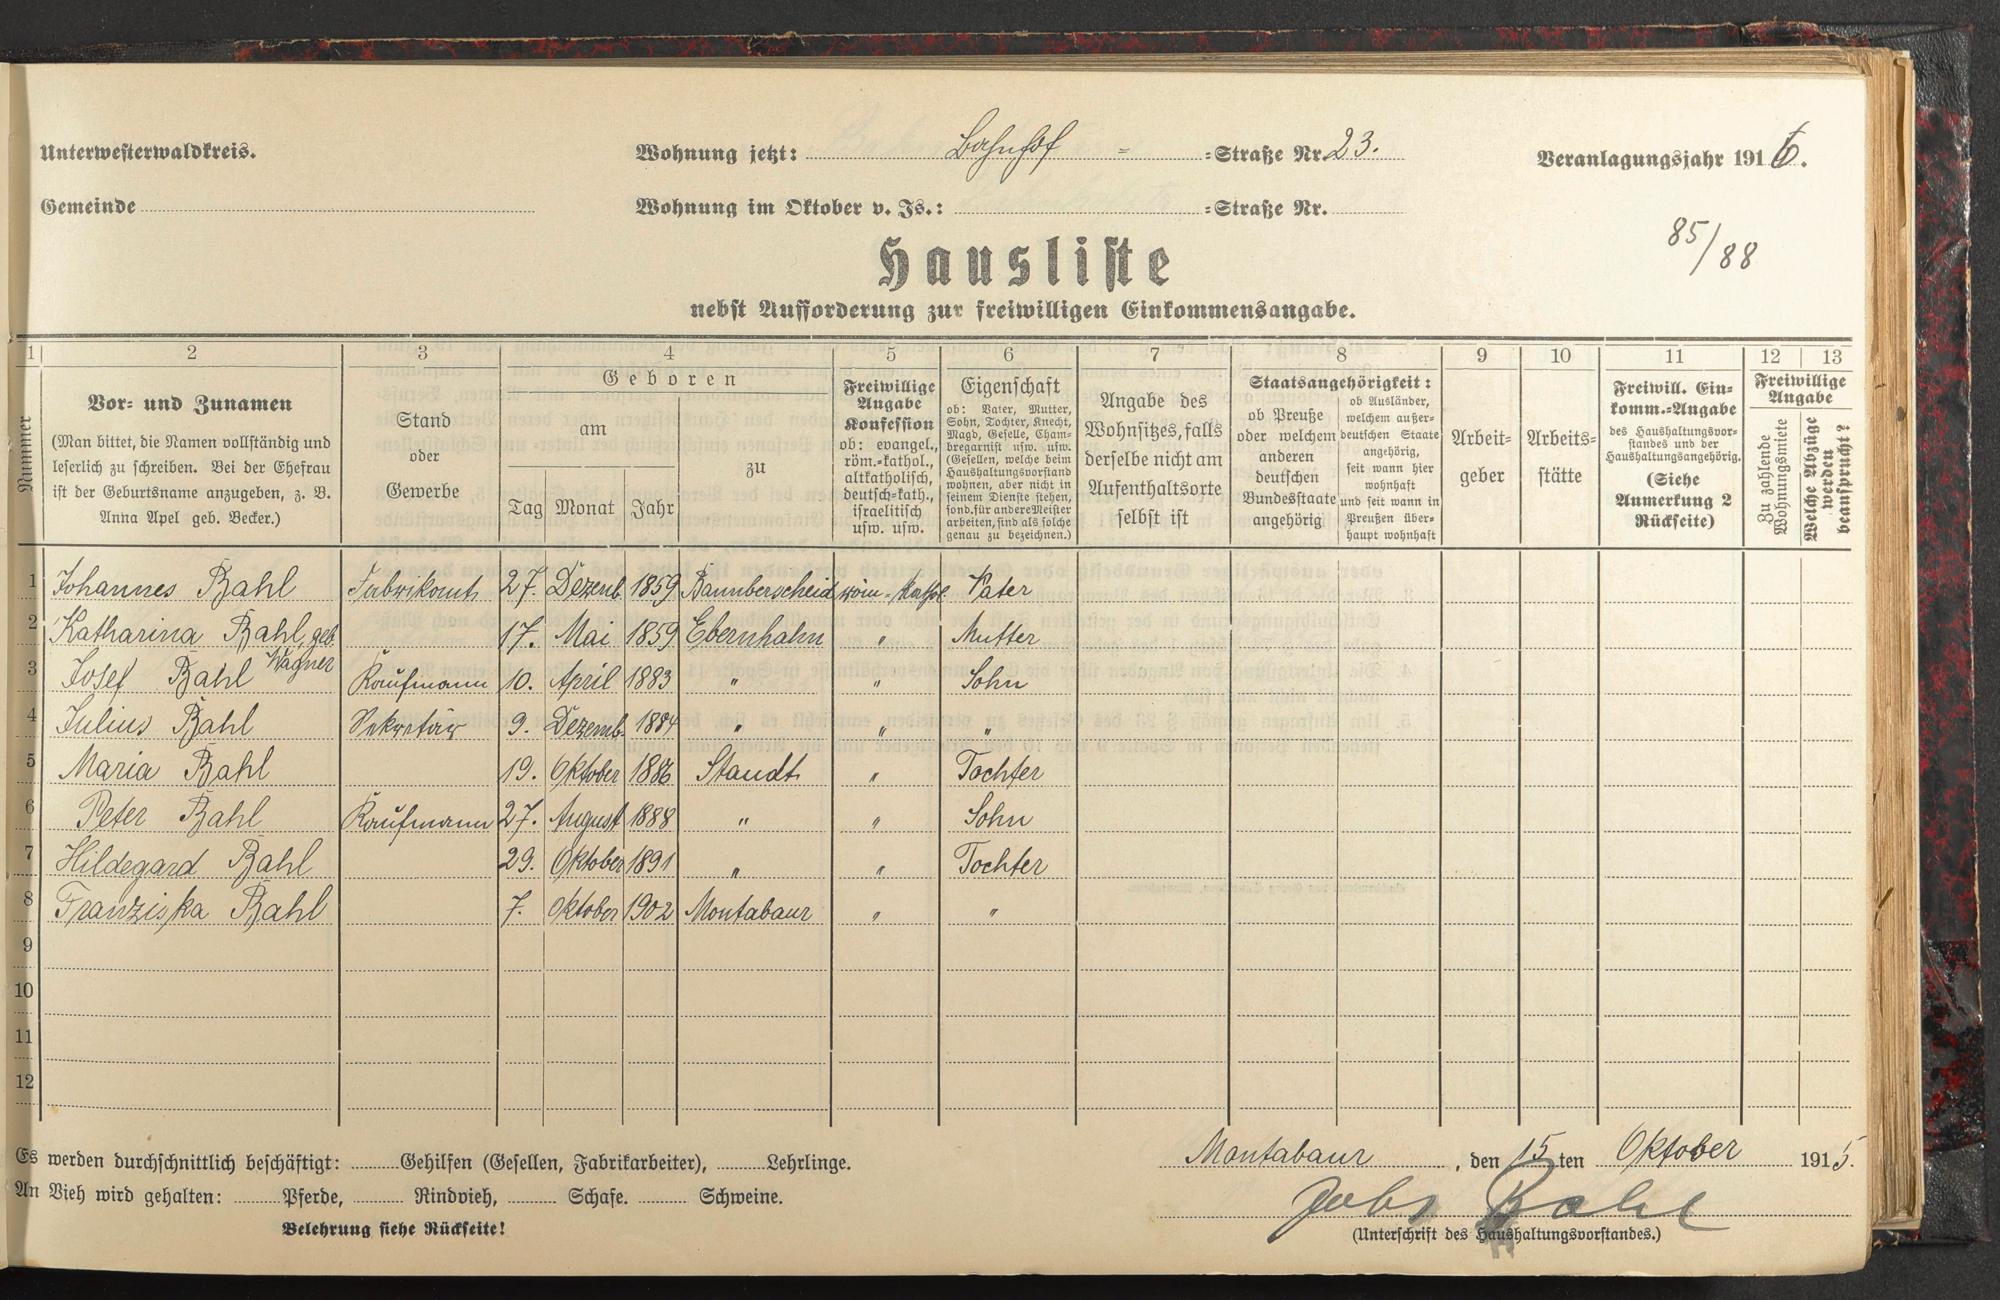 Unterwesterwaldkreis.
Wohnung jetzt: Bahnhof - =Straße Nr. 23.
Veranlagungsjahr 1916.
Gemeinde
Wohnung im Oktober v. Js.: =Straße Nr.
85/88
Hausliste
nebst Aufforderung zur freiwilligen Einkommensangabe.
1 2 3 4 5 6 7 8 9 10 11 12 13
Nummer
Vor- und Zunamen
(Man bittet, die Namen vollständig und
leserlich zu schreiben. Bei der Ehefrau
ist der Geburtsname anzugeben, z. B.
Anna Apel geb. Becker.)
Stand
oder
Gewerbe
Geboren
am
Tag Monat Jahr
zu
Freiwillige
Angabe
Konfession
ob: evangel.,
röm.-kathol.,
altkatholisch,
deutsch-kath.,
israelitisch
usw. usw.
Eigenschaft
ob: Vater, Mutter,
Sohn, Tochter, Knecht,
Magd, Geselle, Cham-
bregarnist usw. usw.
(Gesellen, welche beim
Haushaltungsvorstand
wohnen, aber nicht in
seinem Dienste stehen,
sond. für andere Meister
arbeiten, sind als solche
genau zu bezeichnen.)
Angabe des
Wohnsitzes, falls
derselbe nicht am
Aufenthaltsorte
selbst ist
Staatsangehörigkeit:
ob Preuße
oder welchem
anderen
deutschen
Bundesstaate
angehörig
ob Ausländer,
welchem außer-
deutschen Staate
angehörig,
seit wann hier
wohnhaft
und seit wann in
Preußen über-
haupt wohnhaft
Arbeit-
geber
Arbeits-
stätte
Freiwill. Ein-
komm.-Angabe
des Haushaltungsvor-
standes und der
Haushaltungsangehörig.
(Siehe
Anmerkung 2
Rückseite)
Freiwillige
Angabe
Zu zahlende
Wohnungsmiete
Welche Abzüge
werden
beansprucht?
1 Johannes Bahl Fabrikant 27. Dezemb. 1859 Bannberscheid röm-kathol Vater
2 Katharina Bahl, geb. 17. Mai 1859 Ebernhahn " Mutter
Wagner
3 Josef Bahl Kaufmann 10. April 1883 " " Sohn
4 Julius Bahl Sekretär 9. Dezemb. 1884 " " "
5 Maria Bahl 19. Oktober 1886 Staudt " Tochter
6 Peter Bahl Kaufmann 27. August 1888 " " Sohn
7 Hildegard Bahl 29. Oktober 1891 " " Tochter
8 Franziska Bahl 7. Oktober 1902 Montabaur " "
9
10
11
12
Es werden durchschnittlich beschäftigt: Gehilfen (Gesellen, Fabrikarbeiter), Lehrlinge.
An Vieh wird gehalten: Pferde, Rindvieh, Schafe. Schweine.
Belehrung siehe Rückseite!
Montabaur, den 15ten Oktober 1915.
Johs Bahl
(Unterschrift des Haushaltungsvorstandes.)